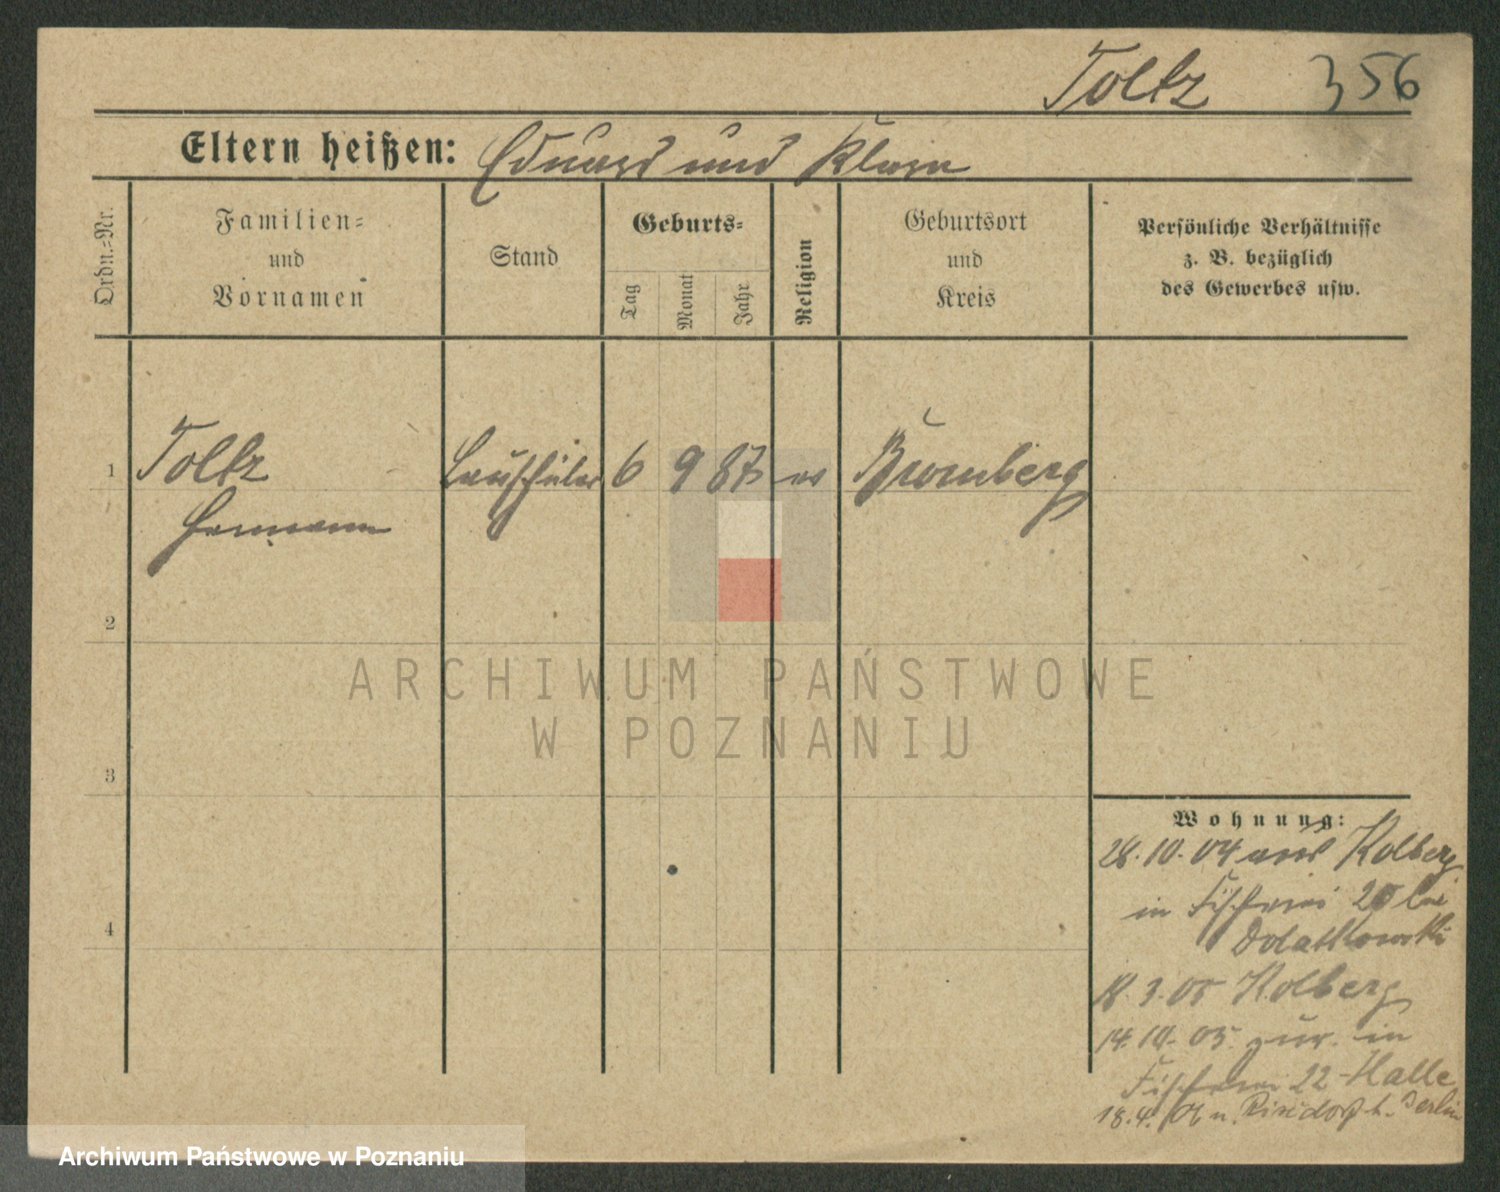 Toltz 356
Eltern heißen: Eduard und Klara
Ordn.-Nr.
Familien-
und
Vornamen
Stand
Geburts-
Tag
Monat
Jahr
Religion
Geburtsort
und
Kreis
Persönliche Verhältnisse
z. B. bezüglich
des Gewerbes usw.
1 Toltz Bauschüler 6 9 87 ev Bromberg
Hermann
2
3
4
Wohnung:
28.10.04 aus Kolberg
in Fischerei 20 bei
Dolatkowski
18.3.05 Kolberg
14.10.05 zur. in
Fischerei 22 Halle
18.4.06 n. Rixdorf b. Berlin
ARCHIWUM PAŃSTWOWE
W POZNANIU
Archiwum Państwowe w Poznaniu